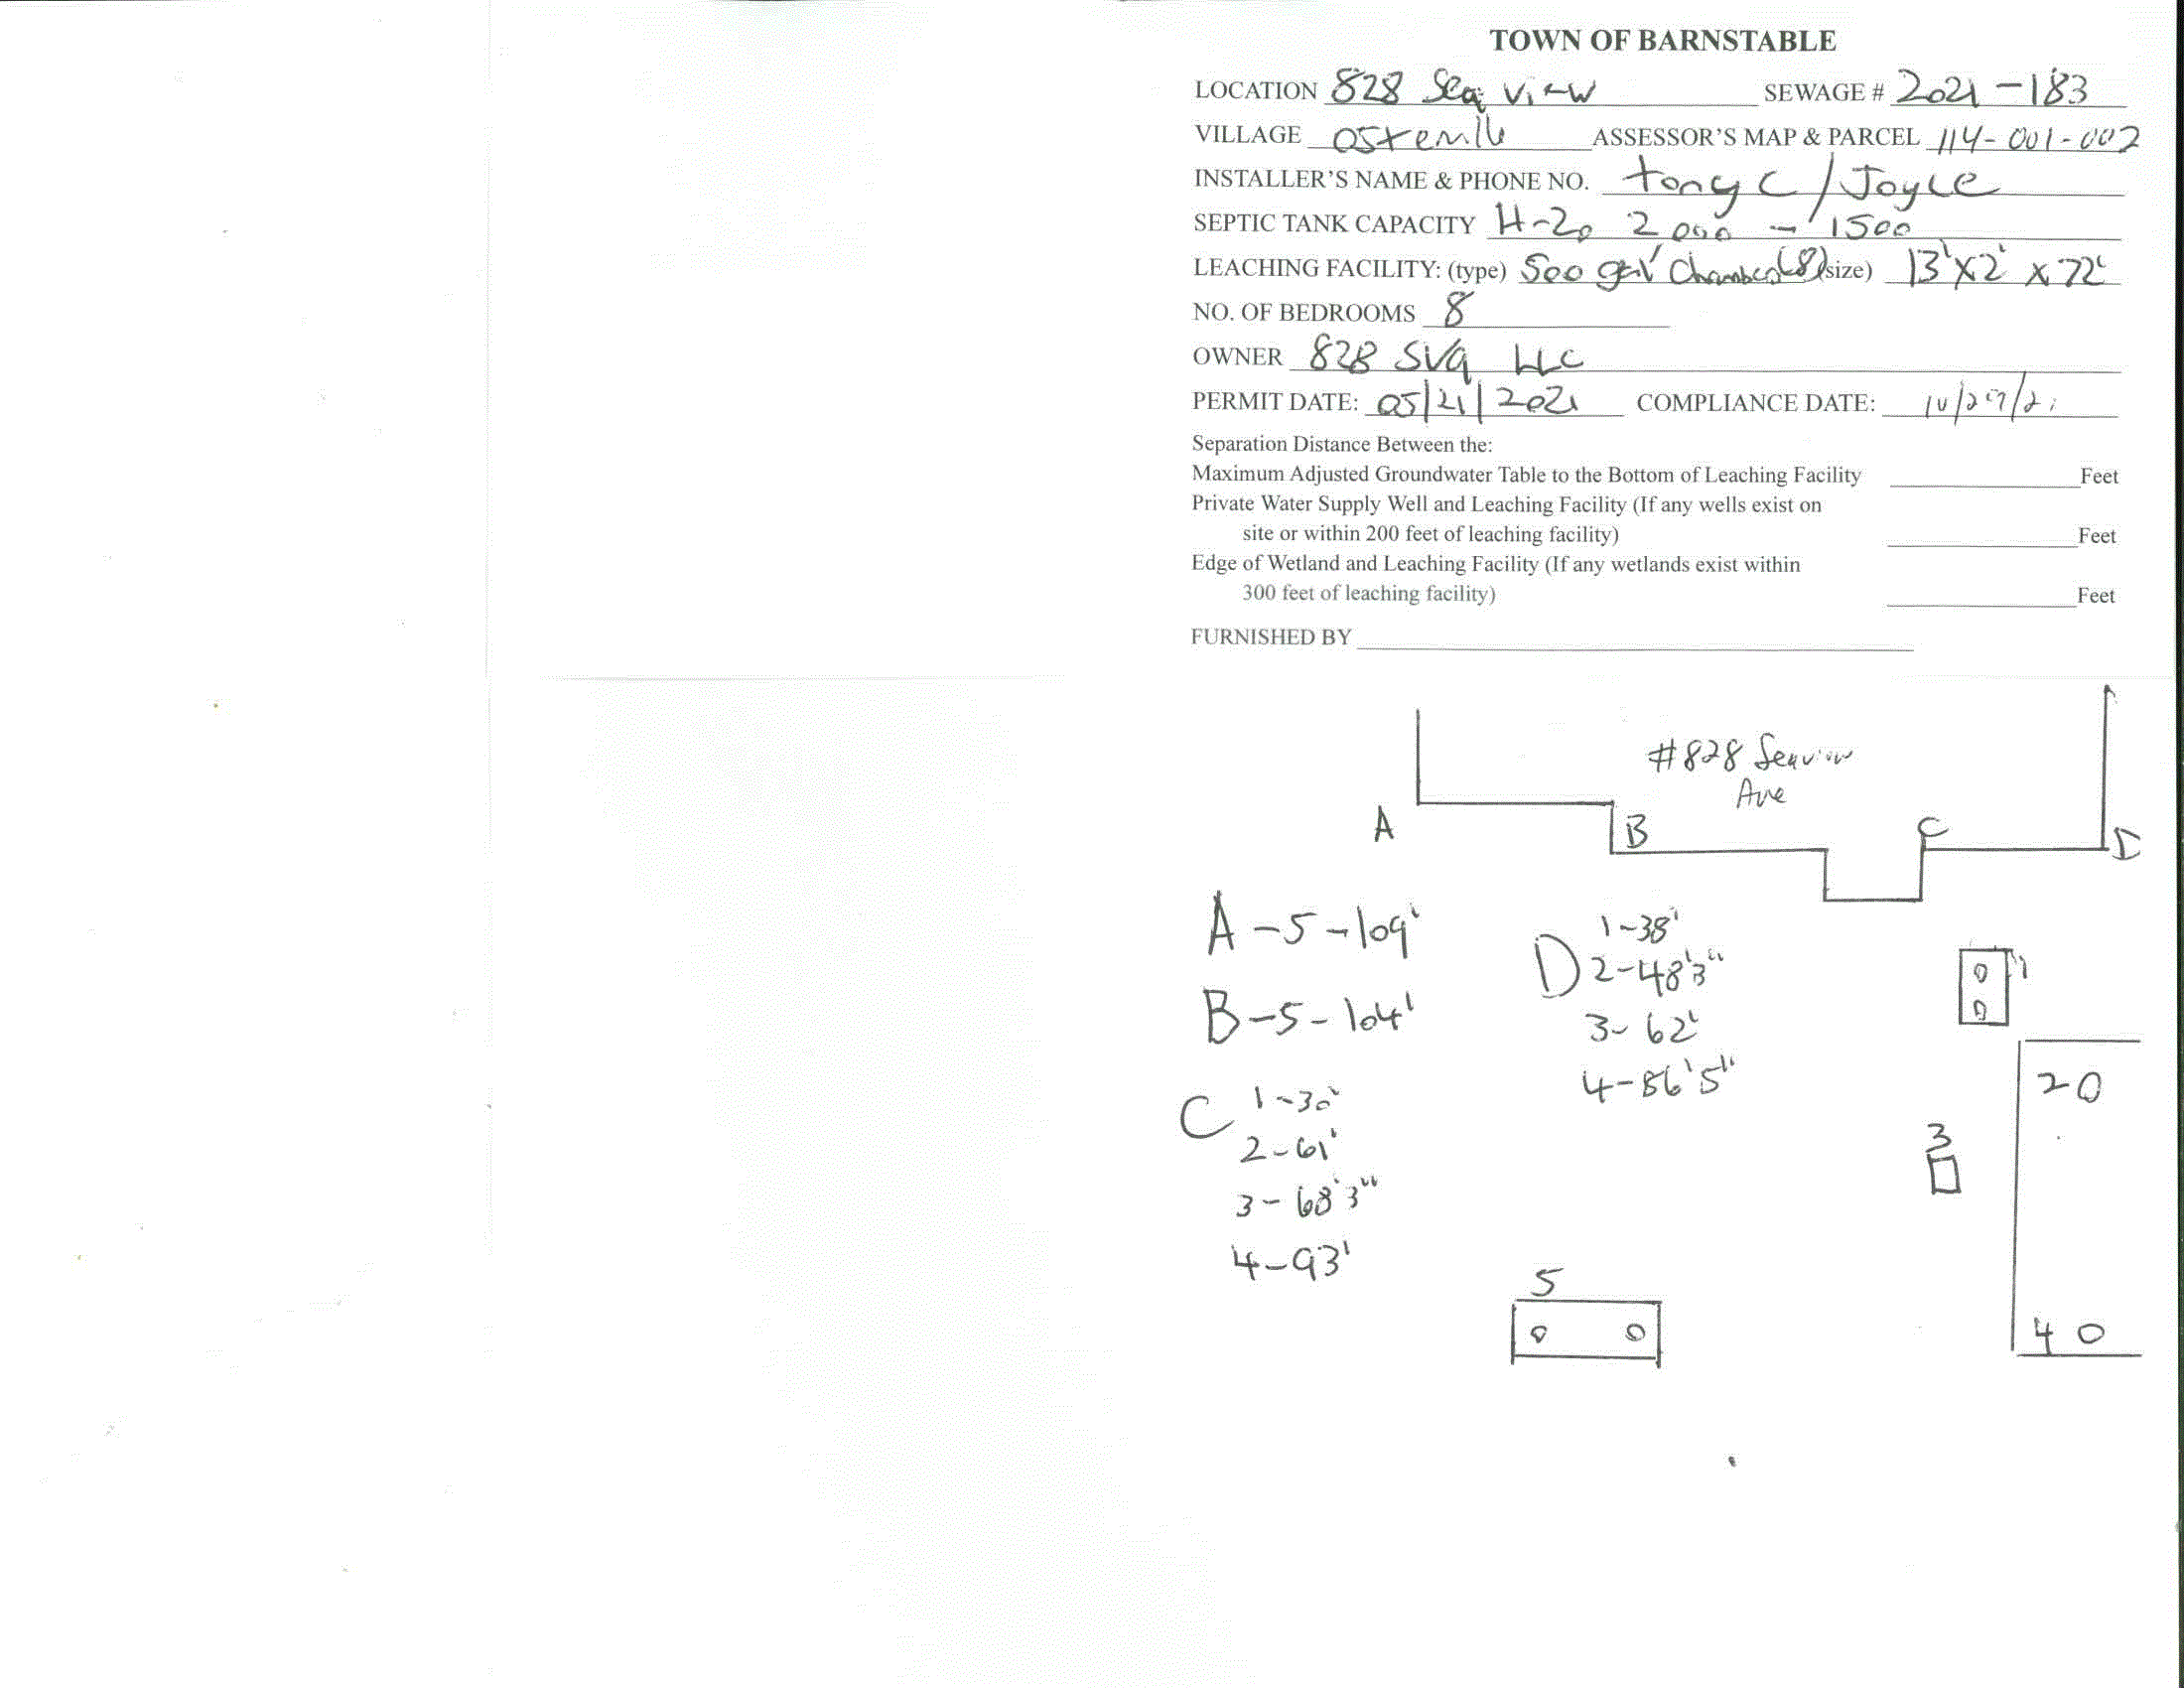 TOWN OF BARNSTABLE
LOCATION 828 Sea View SEWAGE # 2021-183
VILLAGE Osterville ASSESSOR'S MAP & PARCEL 114-001-002
INSTALLER'S NAME & PHONE NO. Tony C / Joyce
SEPTIC TANK CAPACITY H-20 2000 - 1500
LEACHING FACILITY: (type) 500 gal Chambers (8) (size) 13' x 2' x 72'
NO. OF BEDROOMS 8
OWNER 828 SVA LLC
PERMIT DATE: 05/21/2021 COMPLIANCE DATE:
Separation Distance Between the:
Maximum Adjusted Groundwater Table to the Bottom of Leaching Facility Feet
Private Water Supply Well and Leaching Facility (If any wells exist on
site or within 200 feet of leaching facility) Feet
Edge of Wetland and Leaching Facility (If any wetlands exist within
300 feet of leaching facility) Feet
FURNISHED BY
#828 Seaview
Ave
A
B
C
D
A-5-109'
B-5-104'
C 1-30'
2-61'
3-68'3"
4-93'
D 1-38'
2-48'3"
3-62'
4-86'5"
1
20
3
40
5